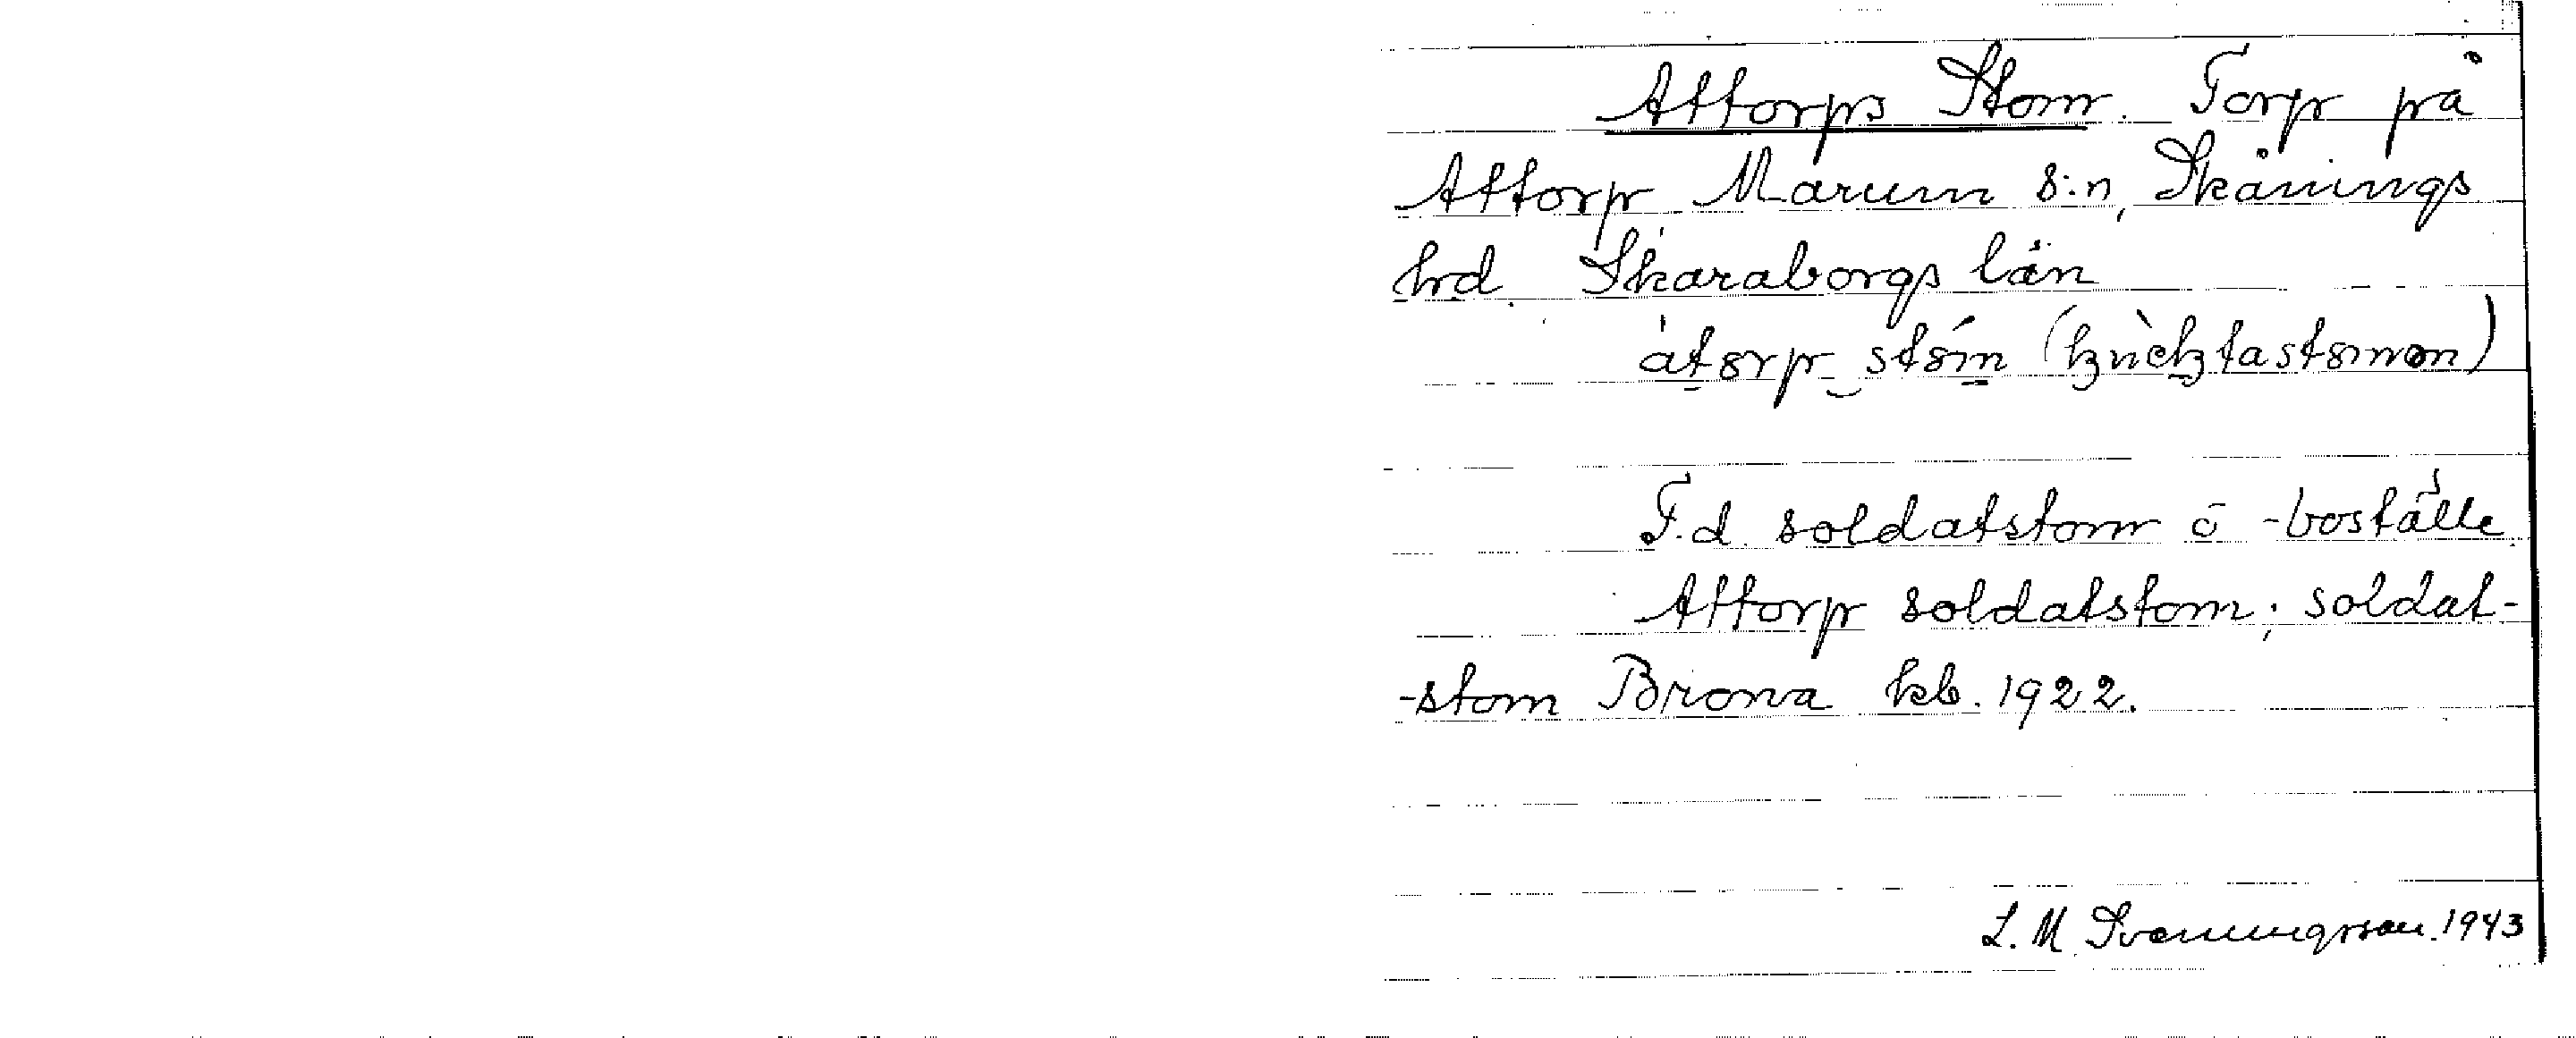 Attorps Stom. Torp på
Attorp Marum s:n, Skånings
hrd. Skaraborgs län
F.d. soldatstom o -boställe
Attorp soldatstom; soldat-
-stom Brona kb. 1922.
L. M. Svenungsson. 1943